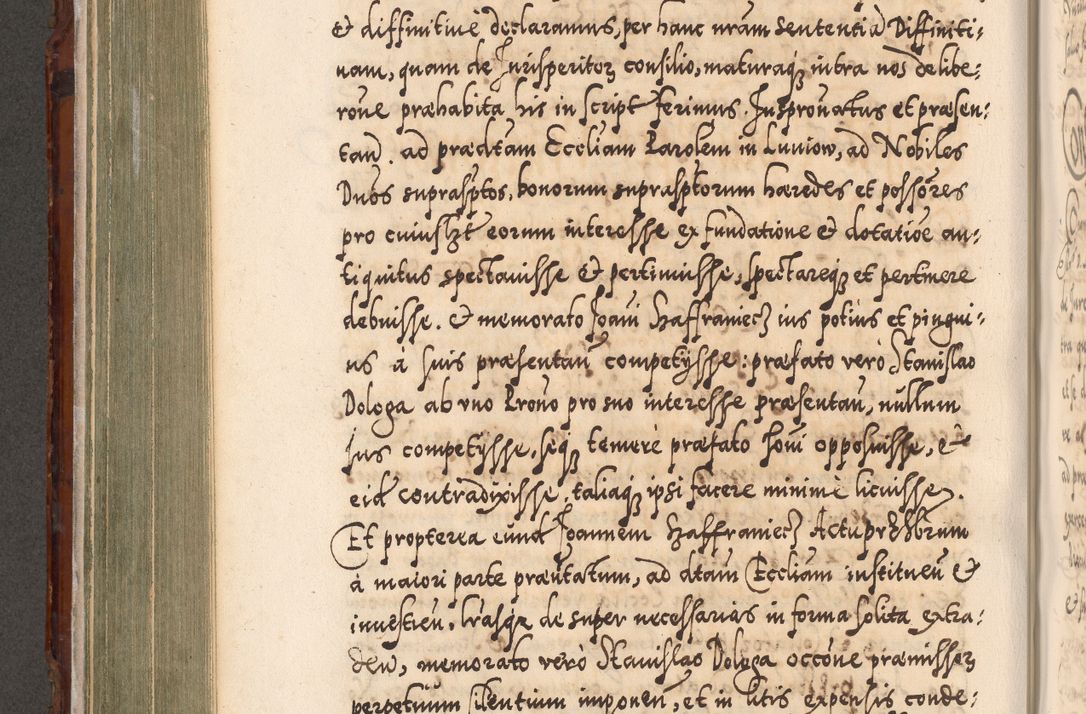 & diffinitiuè declaramus, per hanc nram Sententiā Diffiniti=
uam, quam de Jurisperitoꝝ consilio, maturaqꝫ intra nos delibe=
roũe præhabita his in script ferimus. Jusprōnatus et præsen=
tan̄. ad præditam Eccliam Paroleṁ in Luniow, ad Nobiles
Duos suprasptos, bonorum suprasptorum hæredes et possores
pro cuiuslꝫt eorum interesse ex fundatione & dotatiōe an=
tiquitus spectauisse & pertinuisse, spectareqꝫ et pertinere
debuisse. & memorato Joañi Szaffraniecz ius potius et pingui=
us à suis præsentan̄ competÿsse: præfato verò Stanislao
Dologa ab vno Prono pro suo interesse præsentan̄, nullum
Jus competÿsse, seqꝫ temerè præfato Joñi opposuisse, &
eid contradixisse, taliaqꝫ ipsi facere minimè licuisse.
Et propterea eund Joannem Szaffraniecz Actu prꝫbrum
à maiori parte præntatum, ad dtam Eccliam instituen̄ &
inuestien̄, lrasqꝫ de super necessarias in forma solita extra=
den̄, memorato verò Stanislao Dologa occōne præmissoꝝ
perpetuum silentium imponen̄, et in litis expensis conde=